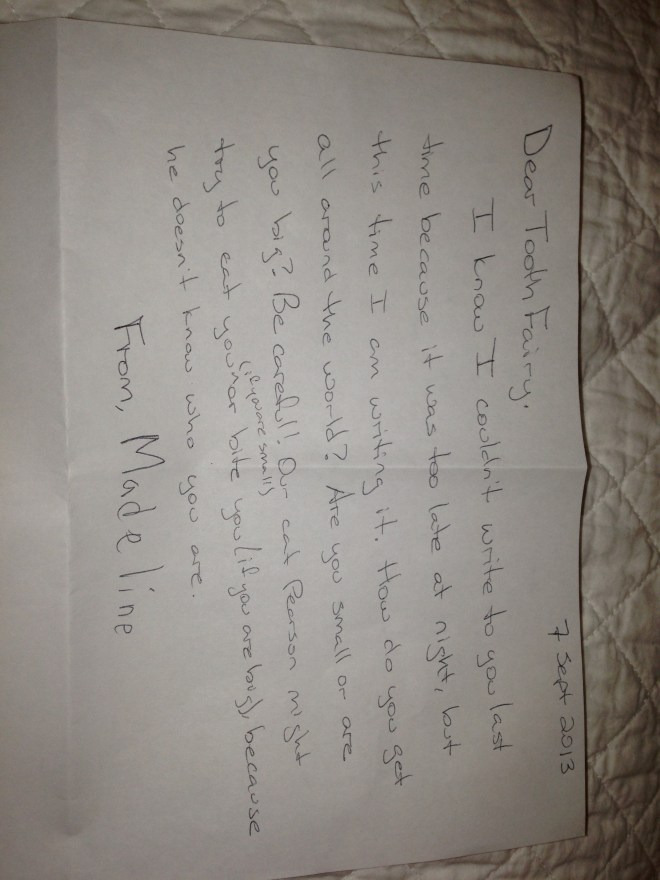 7 Sept 2013
Dear Tooth Fairy,
I know I couldn't write to you last
time because it was too late at night, but
this time I am writing it. How do you get
all around the world? Are you small or are
you big? Be careful! Our cat Pearson might
(if you are small)
try to eat you nor bite you (if you are big), because
he doesn't know who you are.
From, Madeline